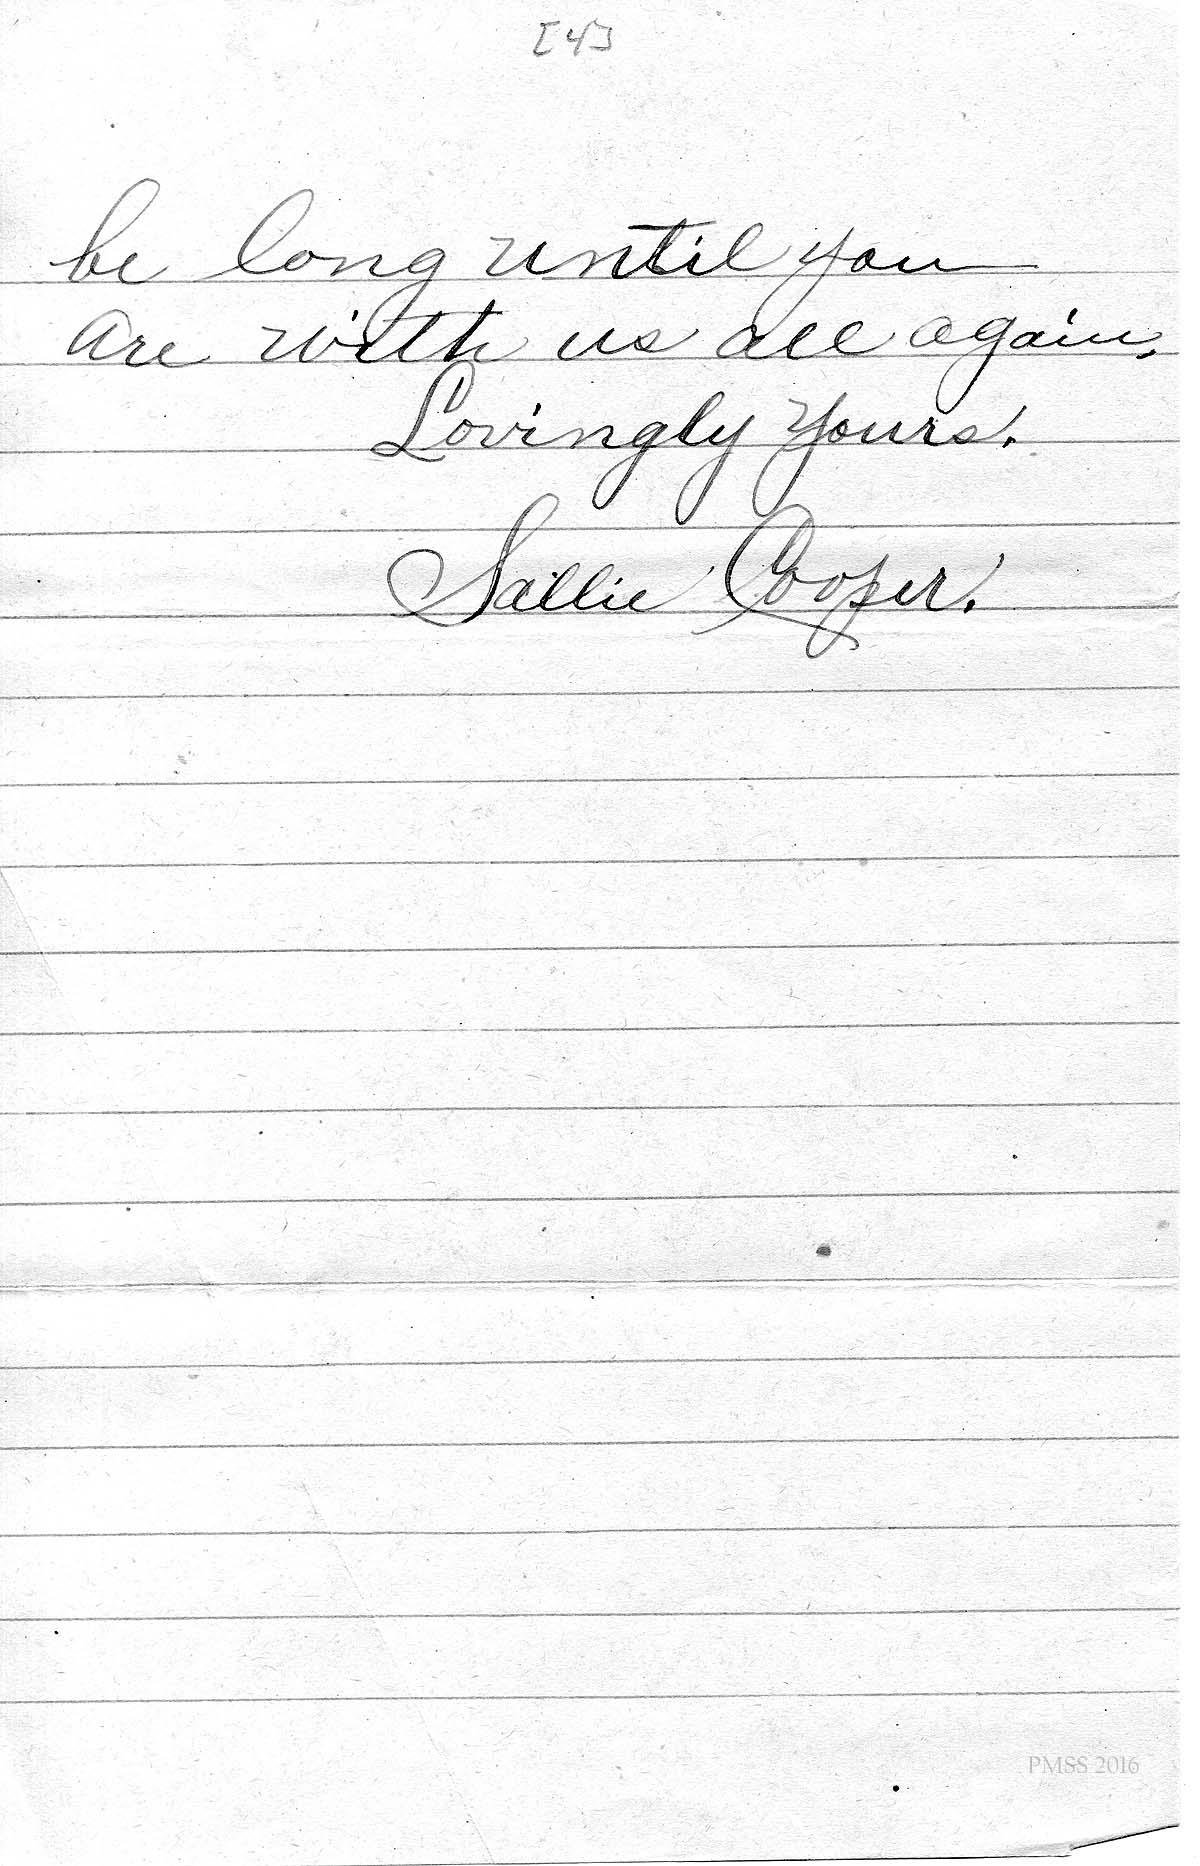 [4]
be long until you
are with us all again.
Lovingly Yours.
Sallie Cooper.
PMSS 2016